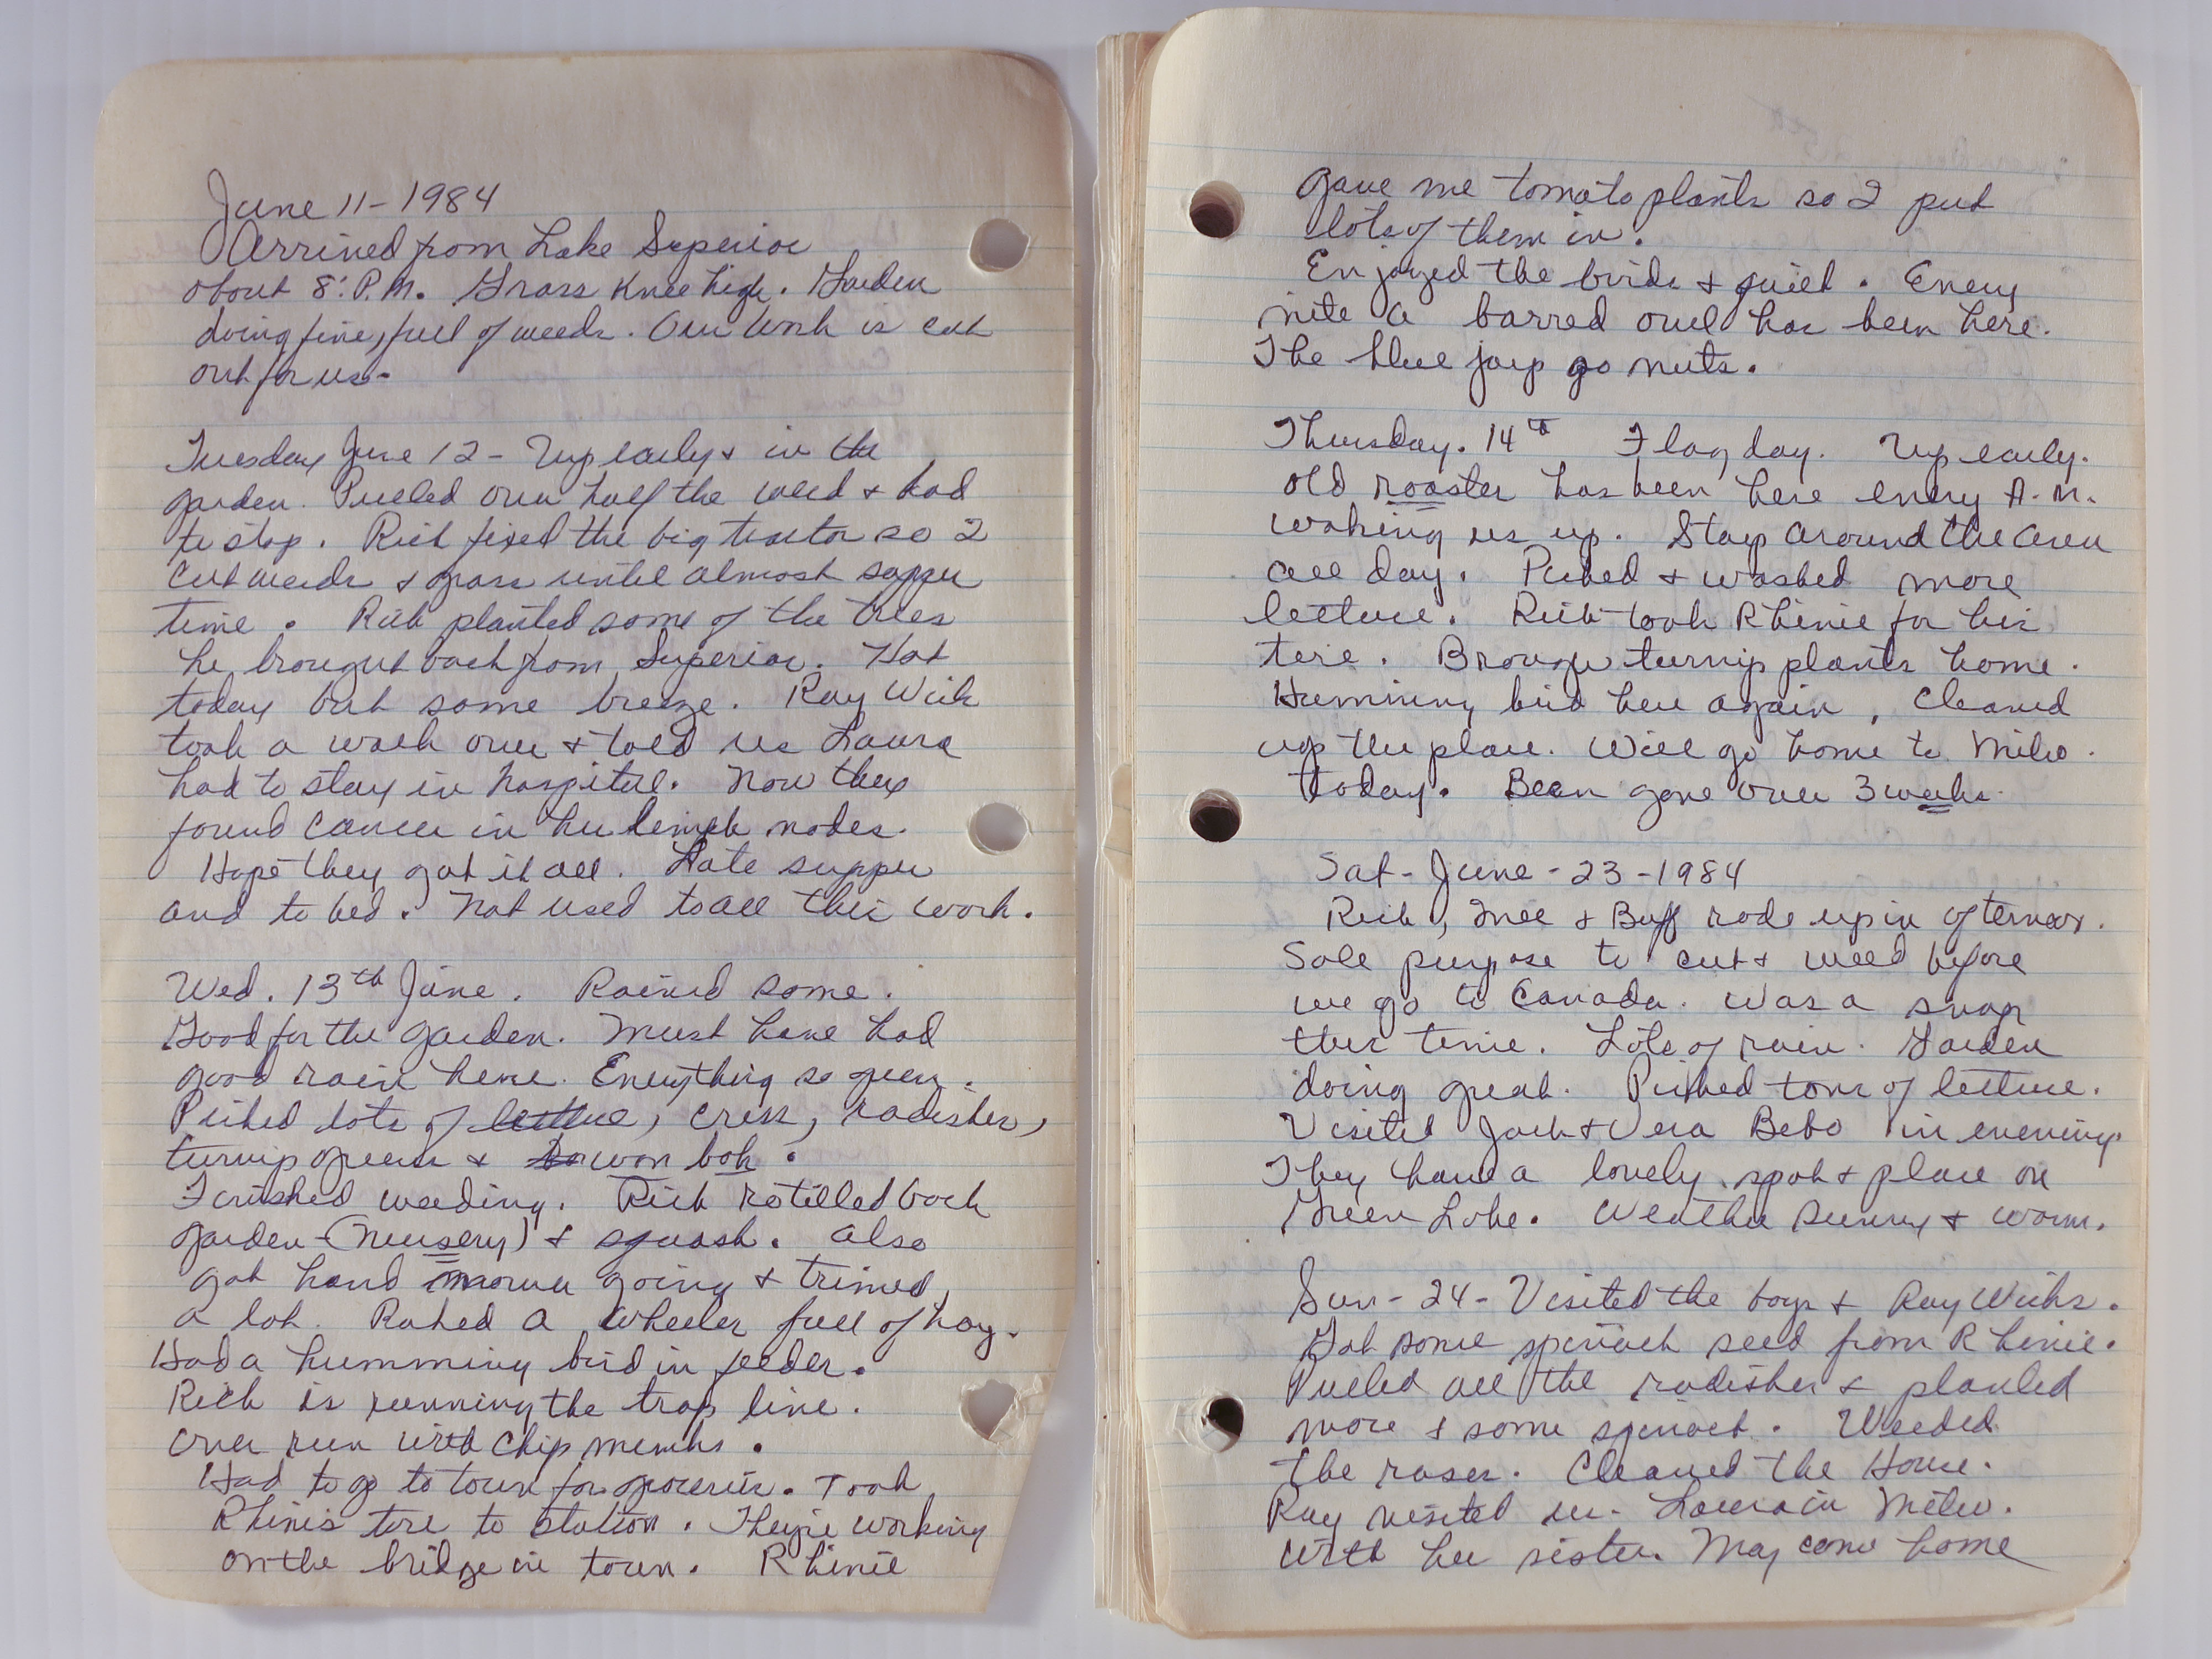 June 11-1984
Arrived from Lake Superior
about 8: P.M. Grass Knee high. Garden
doing fine, full of weeds. Our work is cut
out for us-
Tuesday June 12 - Up early & in the
garden. Pulled over half the weed & had
to stop. Rich fixed the big tractor so I
cut weeds & grass until almost supper
time. Rich planted some of the trees
he brought back from Superior. Hot
today but some breeze. Ray Wick
took a walk over & told us Laura
had to stay in hospital. Now they
found cancer in her limph nodes.
Hope they got it all. Late supper
and to bed. Not used to all this work.
Wed. 13th June. Rained some.
Good for the garden. Must have had
good rain here. Everything so green.
Picked lots of lettuce, cress, radishes,
turnip greens & won bok.
Finished weeding. Rich rotilled back
garden - (nursery) & squash. Also
got hand mower going & trimed
a lot. Raked a wheeler full of hay.
Had a humming bird in feeder.
Rich is running the trap line.
Over run with chip munks.
Had to go to town for groceries. Took
Rhinis tire to station. They're working
on the bridge in town. Rhinie
gave me tomato plants so I put
lots of them in.
Enjoyed the birds & quiet. Every
nite a barred owl has been here.
The blue jays go nuts.
Thursday. 14th Flag day. Up early.
Old rooster has been here every A.M.
waking us up. Stays around the area
all day. Picked & washed more
lettuce. Rich took Rhinie for his
tire. Brough turnip plants home.
Humming bird here again, Cleaned
up the place. Will go home to Milw.
today. Been gone over 3 weeks.
Sat - June - 23 - 1984
Rich, Mel & Buff rode up in afternoon.
Sole purpose to cut & weed before
we go to Canada. Was a snap
this time. Lots of rain. Garden
doing great. Picked tons of lettuce.
Visited Jack & Vera Bebo in evening.
They have a lovely spot & place on
Green Lake. Weather sunny & warm.
Sun - 24 - Visited the boys & Ray Wicks.
Got some spinach seed from Rhinie.
Pulled all the radishes & planted
more & some spinach. Weeded
the roses. Cleaned the House.
Ray visited us. Laura in Milw.
with her sister. May come home